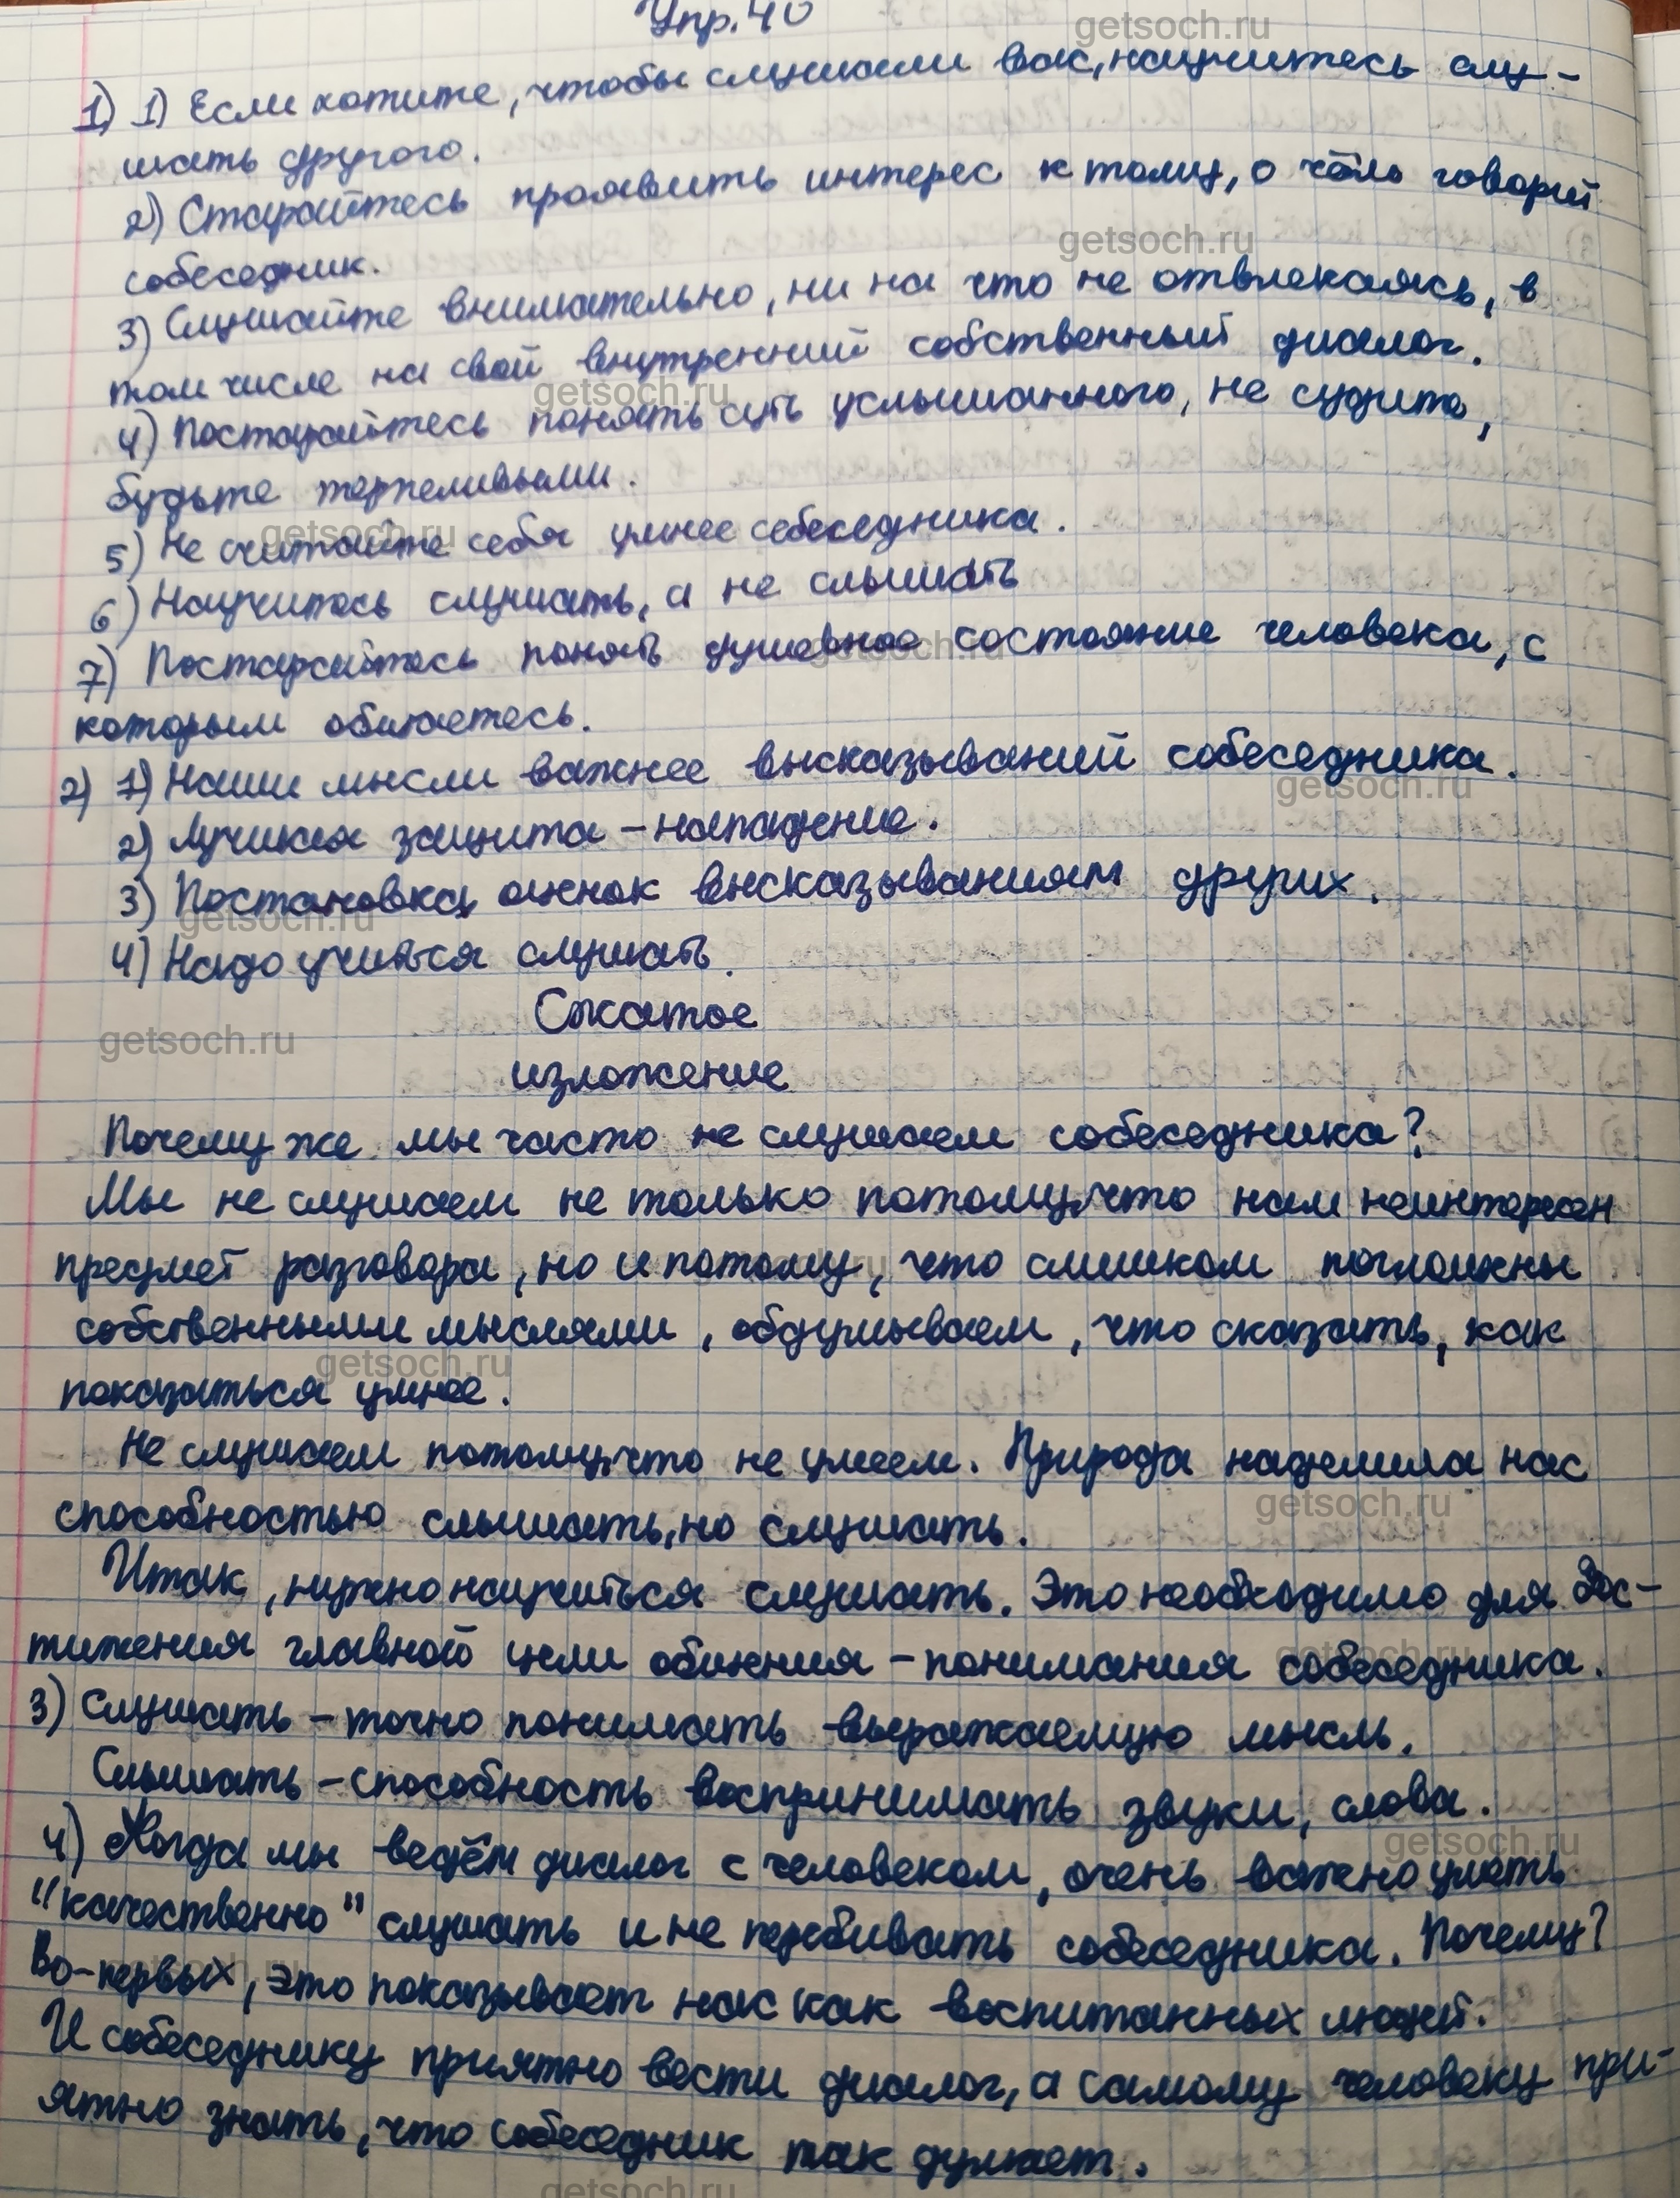 Упр. 40
1) 1) Если хотите, чтобы слушали вас, научитесь слу-
шать другого.
2) Старайтесь проявить интерес к тому, о чём говорит
собеседник.
3) Слушайте внимательно, ни на что не отвлекаясь, в
том числе на свой внутренний собственный диалог.
4) Постарайтесь понять суть услышанного, не судите,
будьте терпеливыми.
5) Не считайте себя умнее себеседника.
6) Научитесь слушать, а не слышать
7) Постарайтесь понять душевное состояние человека, с
которым общаетесь.
2) 1) Наши мысли важнее высказываний собеседника.
2) Лучшая защита – нападение.
3) Постановка оценок высказываниям других.
4) Надо учиться слушать.
Сжатое
изложение
Почему же мы часто не слушаем собеседника?
Мы не слушаем не только потому, что нам неинтересен
предмет разговора, но и потому, что слишком поглощены
собственными мыслями, обдумываем, что сказать, как
показаться умнее.
Не слушаем потому, что не умеем. Природа наделила нас
способностью слышать, но слушать.
Итак, нужно научиться слушать. Это необходимо для дос-
тижения главной цели общения – понимания собеседника.
3) Слушать – точно понимать выражаемую мысль.
Слышать – способность воспринимать звуки, слова.
4) Когда мы ведём диалог с человеком, очень важно уметь
"качественно" слушать и не перебивать собеседника. Почему?
Во-первых, это показывает нас как воспитанных людей.
И собеседнику приятно вести диалог, а самому человеку при-
ятно знать, что собеседник так думает.
getsoch.ru
getsoch.ru
getsoch.ru
getsoch.ru
getsoch.ru
getsoch.ru
getsoch.ru
getsoch.ru
getsoch.ru
getsoch.ru
getsoch.ru
getsoch.ru
getsoch.ru